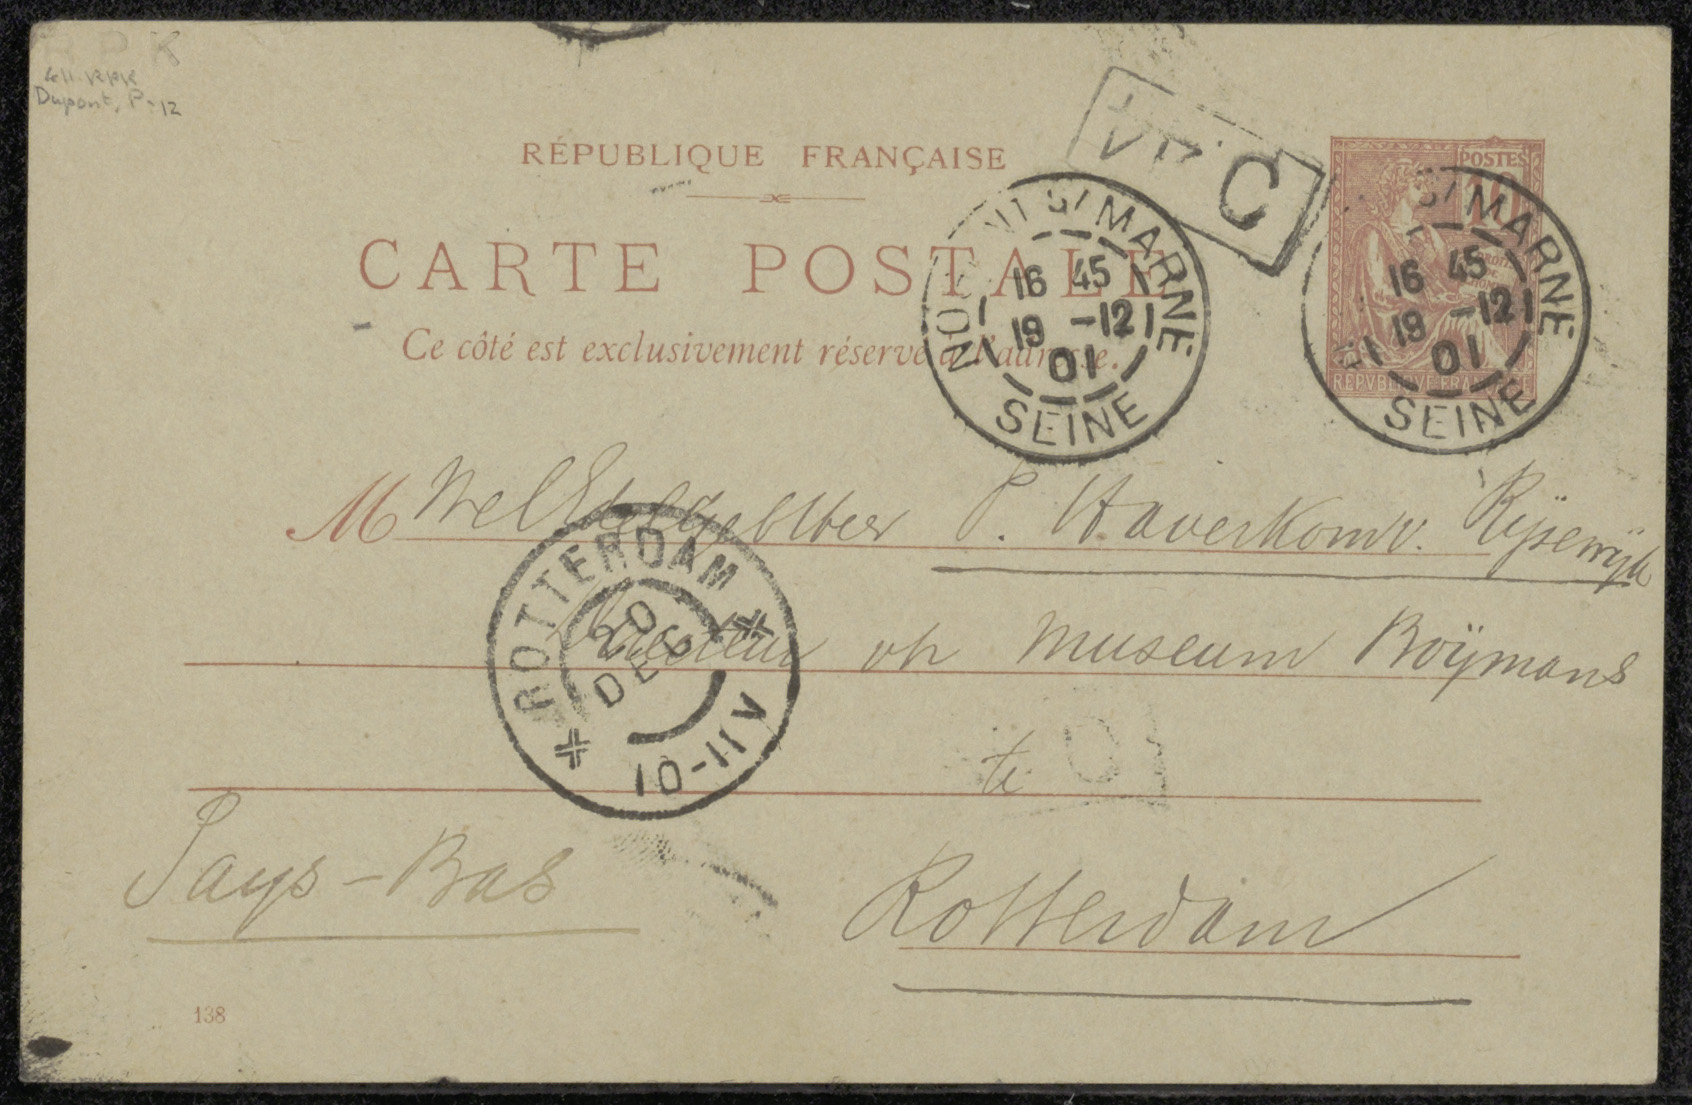 RPK
coll. RPK
Dupont, P-12
RÉPUBLIQUE FRANÇAISE
CARTE POSTALE
Ce côté est exclusivement réservé à l'adresse.
C
NOGENT S/ MARNE
16 45
19 -12
01
SEINE
POSTES
10
S/ MARNE
16 45
19 -12
01
SEINE
REPVBLIQVE FRANÇAISE
M WelEdelGeb. Heer P. Haverkorn v. Rijsewijk
Directeur v/h Museum Boijmans
te
Rotterdam
Pays-Bas
ROTTERDAM
20
DEC
10-11V
138